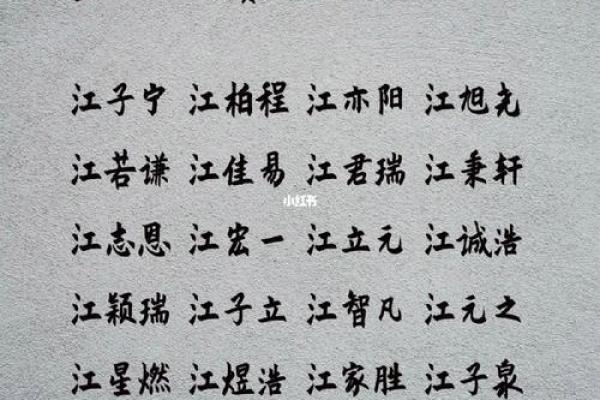 江子宁 江柏程 江亦阳 江旭尧
江若谦 江佳易 江君瑞 江秉轩
小红书
江志恩 江宏一 江立元 江诚浩
江颖瑞 江子立 江智凡 江元之
江星燃 江煜浩 江家胜 江子泉